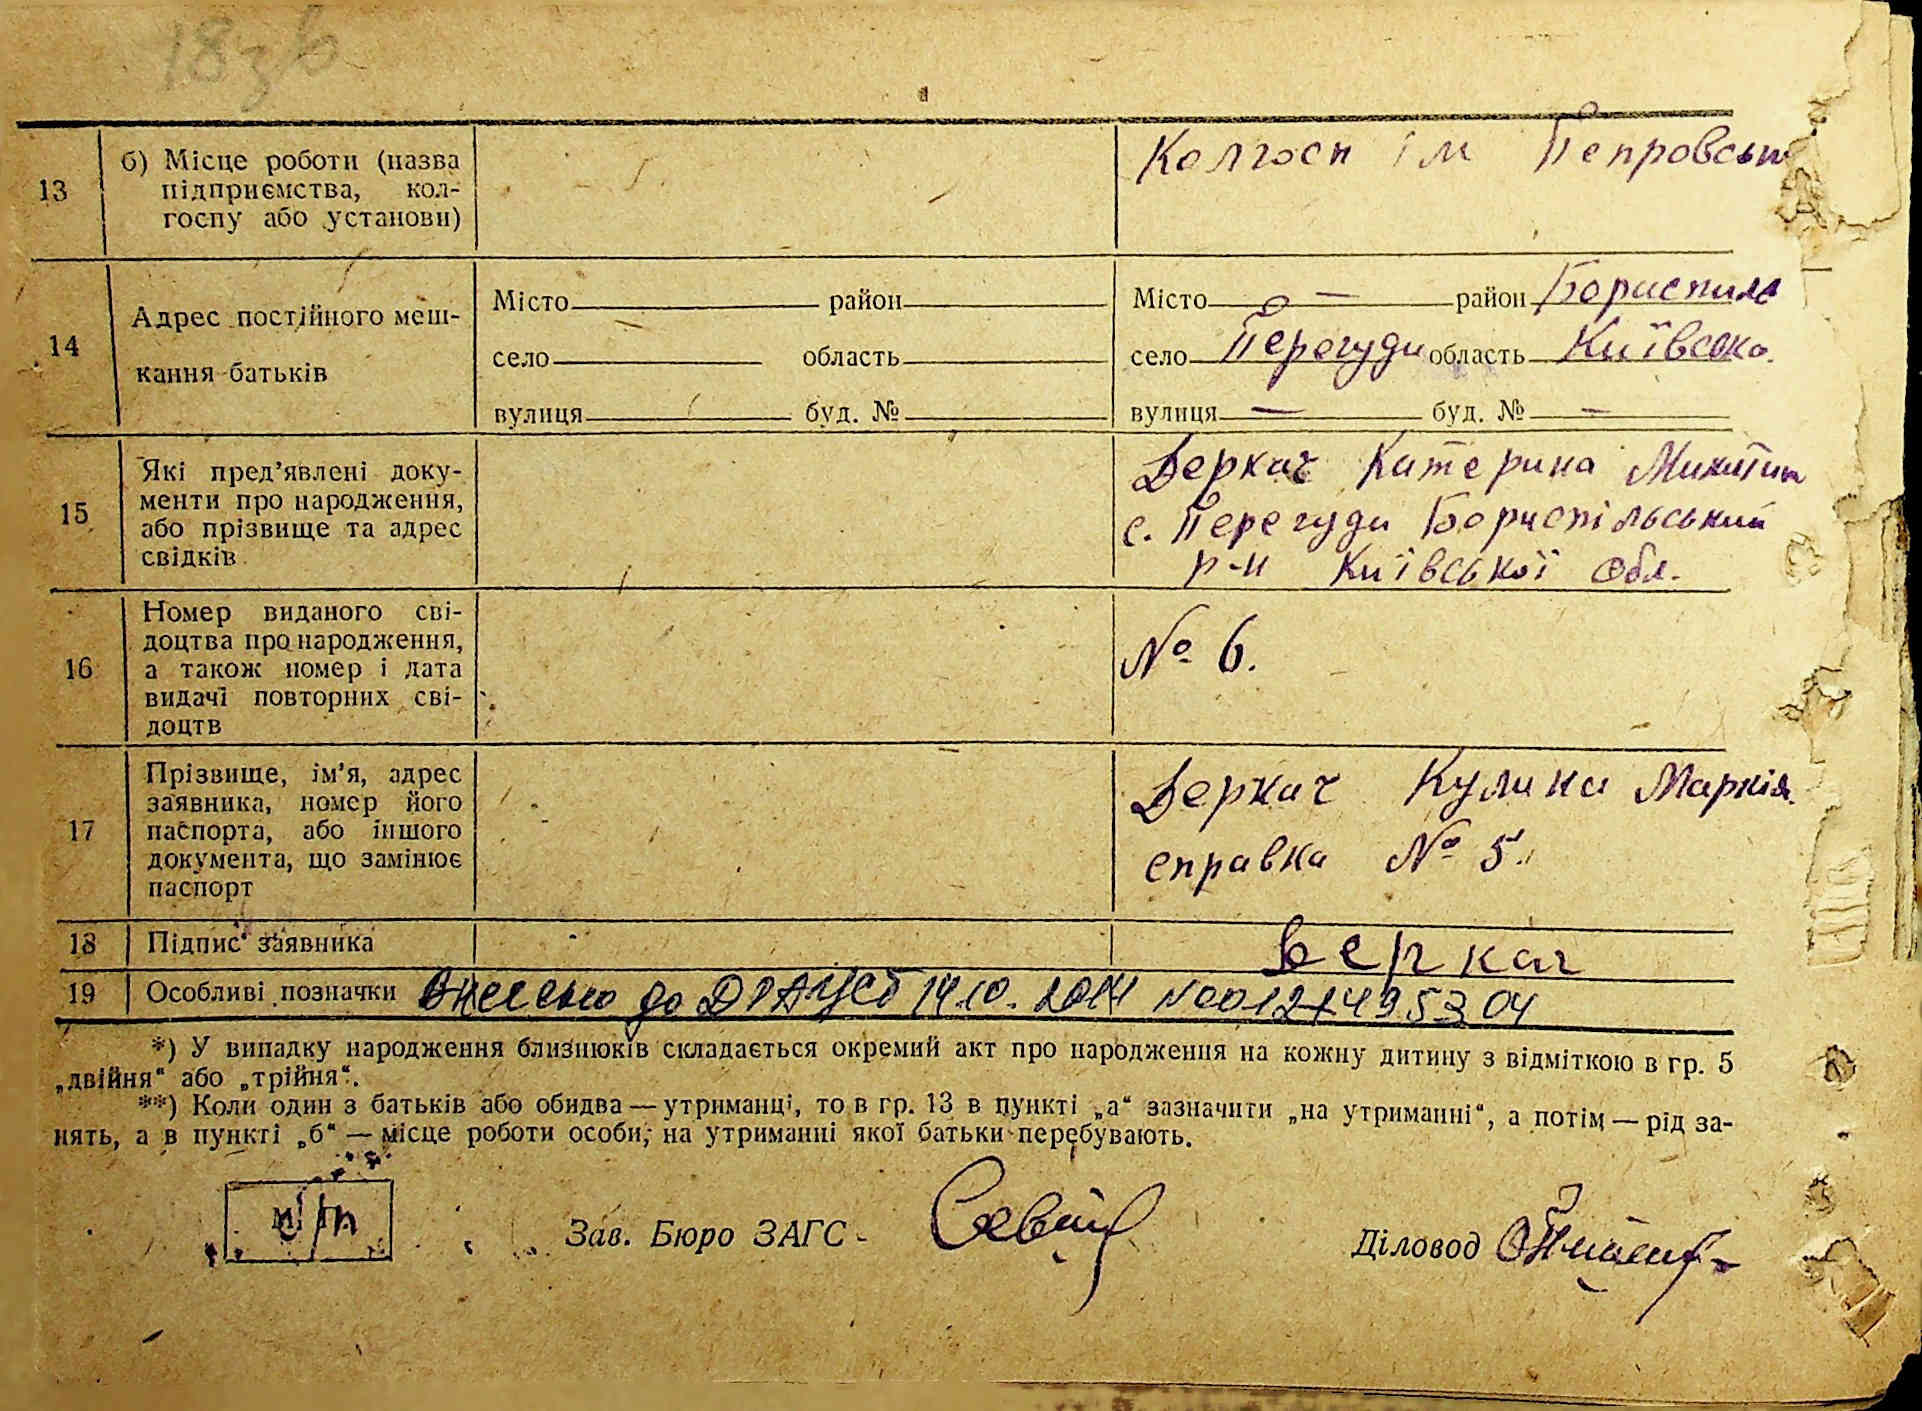 18зв
13 б) Місце роботи (назва підприємства, кол-госпу або установи) Колгосп ім Петровськ
14 Адрес постійного меш-кання батьків
Місто район Місто — район Бориспіль
село область село Перегуди область Київська
вулиця буд. № вулиця — буд. № —
15 Які пред'явлені доку-менти про народження, або прізвище та адрес свідків
Деркач Катерина Микитин
с. Перегуди Бориспільський
р-н Київської обл.
16 Номер виданого сві-доцтва про народження, а також номер і дата видачі повторних сві-доцтв № 6.
17 Прізвище, ім'я, адрес заявника, номер його паспорта, або іншого документа, що замінює паспорт
Деркач Кулина Маркія
справка № 5.
18 Підпис заявника Деркач
19 Особливі позначки Внесено до ДРАЦСГ 14.10.2014 №00127495304
*) У випадку народження близнюків складається окремий акт про народження на кожну дитину з відміткою в гр. 5
„двійня“ або „трійня“.
**) Коли один з батьків або обидва — утриманці, то в гр. 13 в пункті „а“ зазначити „на утриманні“, а потім — рід за-
нять, а в пункті „б“ — місце роботи особи, на утриманні якої батьки перебувають.
м/п
Зав. Бюро ЗАГС Діловод